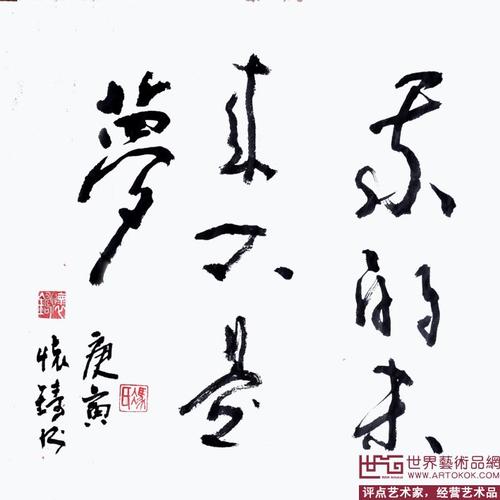 我的未
来不是
夢
庚寅
懷鑄书
世界藝術品網
WWW.ARTOKOK.COM
评点艺术家，经营艺术品